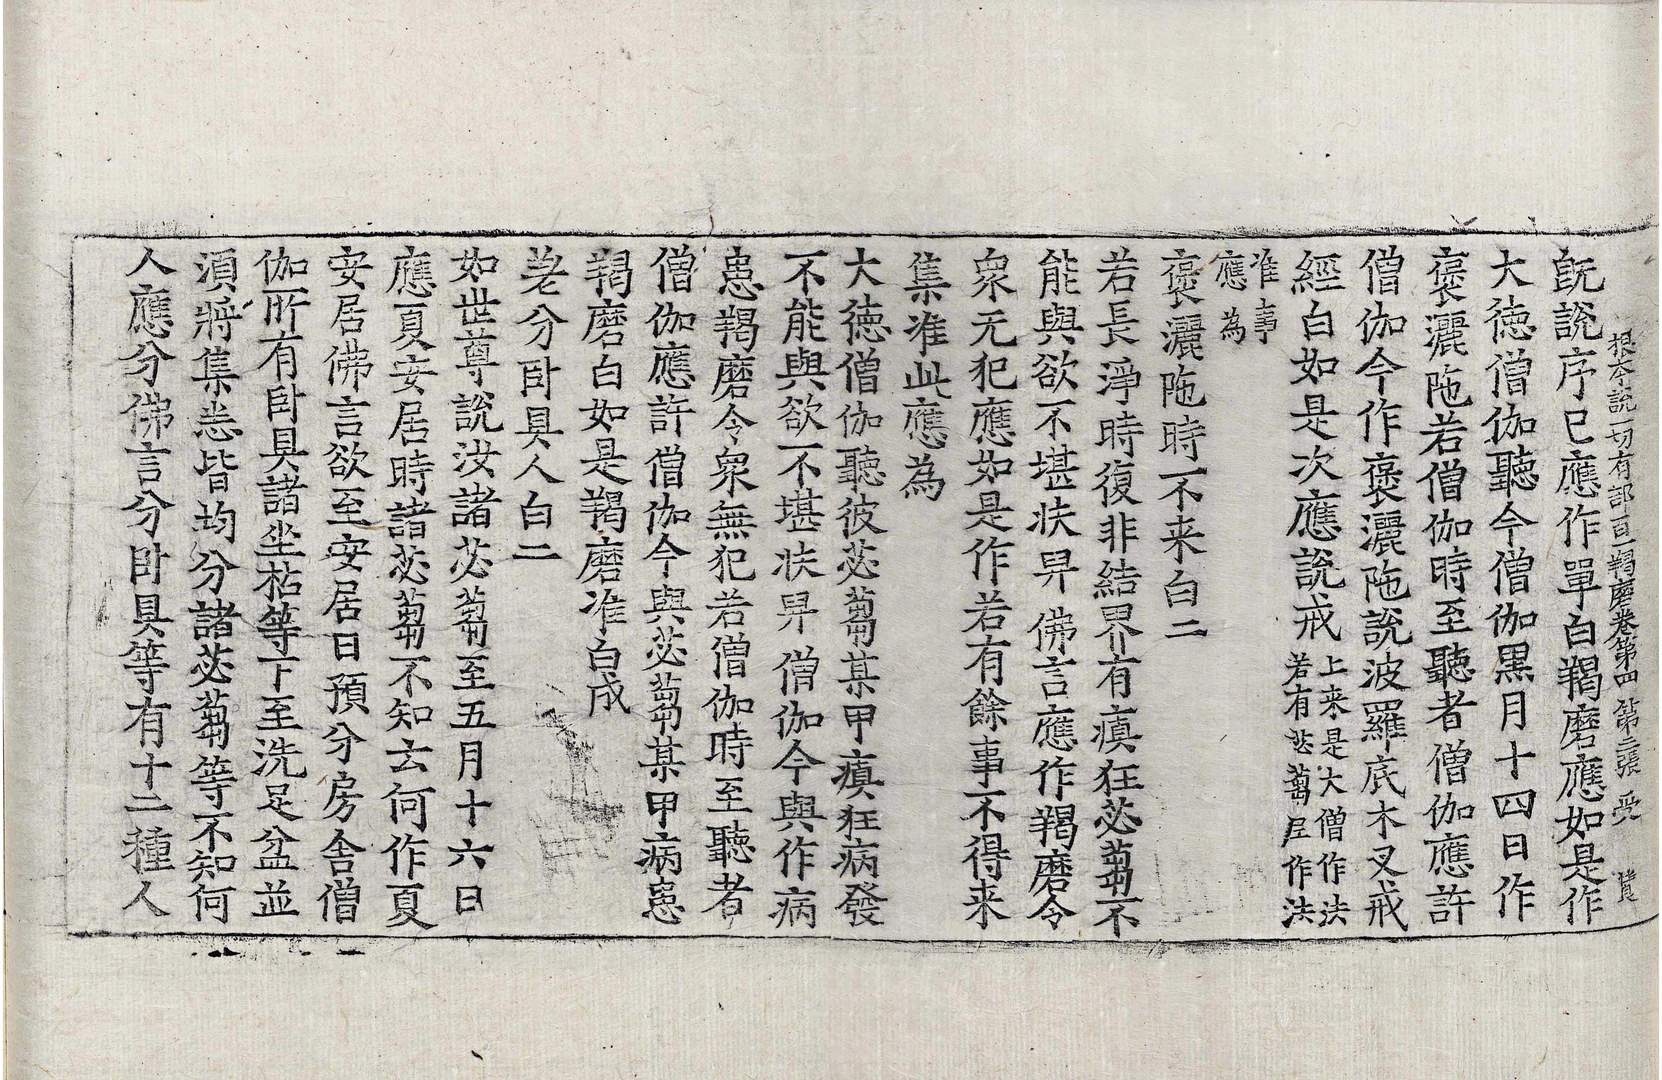 根本說一切有部百一羯磨卷第四 第二張 受
既說序已應作單白羯磨應如是作
大德僧伽聽今僧伽黑月十四日作
褒灑陁若僧伽時至聽者僧伽應許
僧伽今作褒灑陁說波羅底木叉戒
經白如是次應說戒 上来是大僧作法
若有苾蒭尼作法
准事
應為
褒灑陁時不来白二
若長淨時復非結界有瘨狂苾蒭不
能與欲不堪扶舁佛言應作羯磨令
衆无犯應如是作若有餘事不得来
集准此應為
大德僧伽聽彼苾蒭某甲瘨狂病發
不能與欲不堪扶舁僧伽今與作病
患羯磨令衆無犯若僧伽時至聽者
僧伽應許僧伽今與苾蒭某甲病患
羯磨白如是羯磨准白成
差分卧具人白二
如世尊說汝諸苾蒭至五月十六日
應夏安居時諸苾蒭不知云何作夏
安居佛言欲至安居日預分房舍僧
伽所有卧具諸坐枯等下至洗足盆並
湏將集悉皆均分諸苾蒭等不知何
人應分佛言分卧具等有十二種人